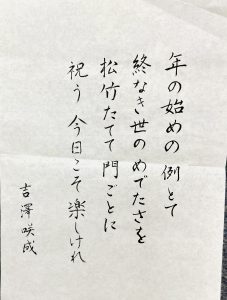 年の始めの例とて
終なき世のめでたさを
松竹たてて門ごとに
祝う今日こそ楽しけれ
吉澤咲成